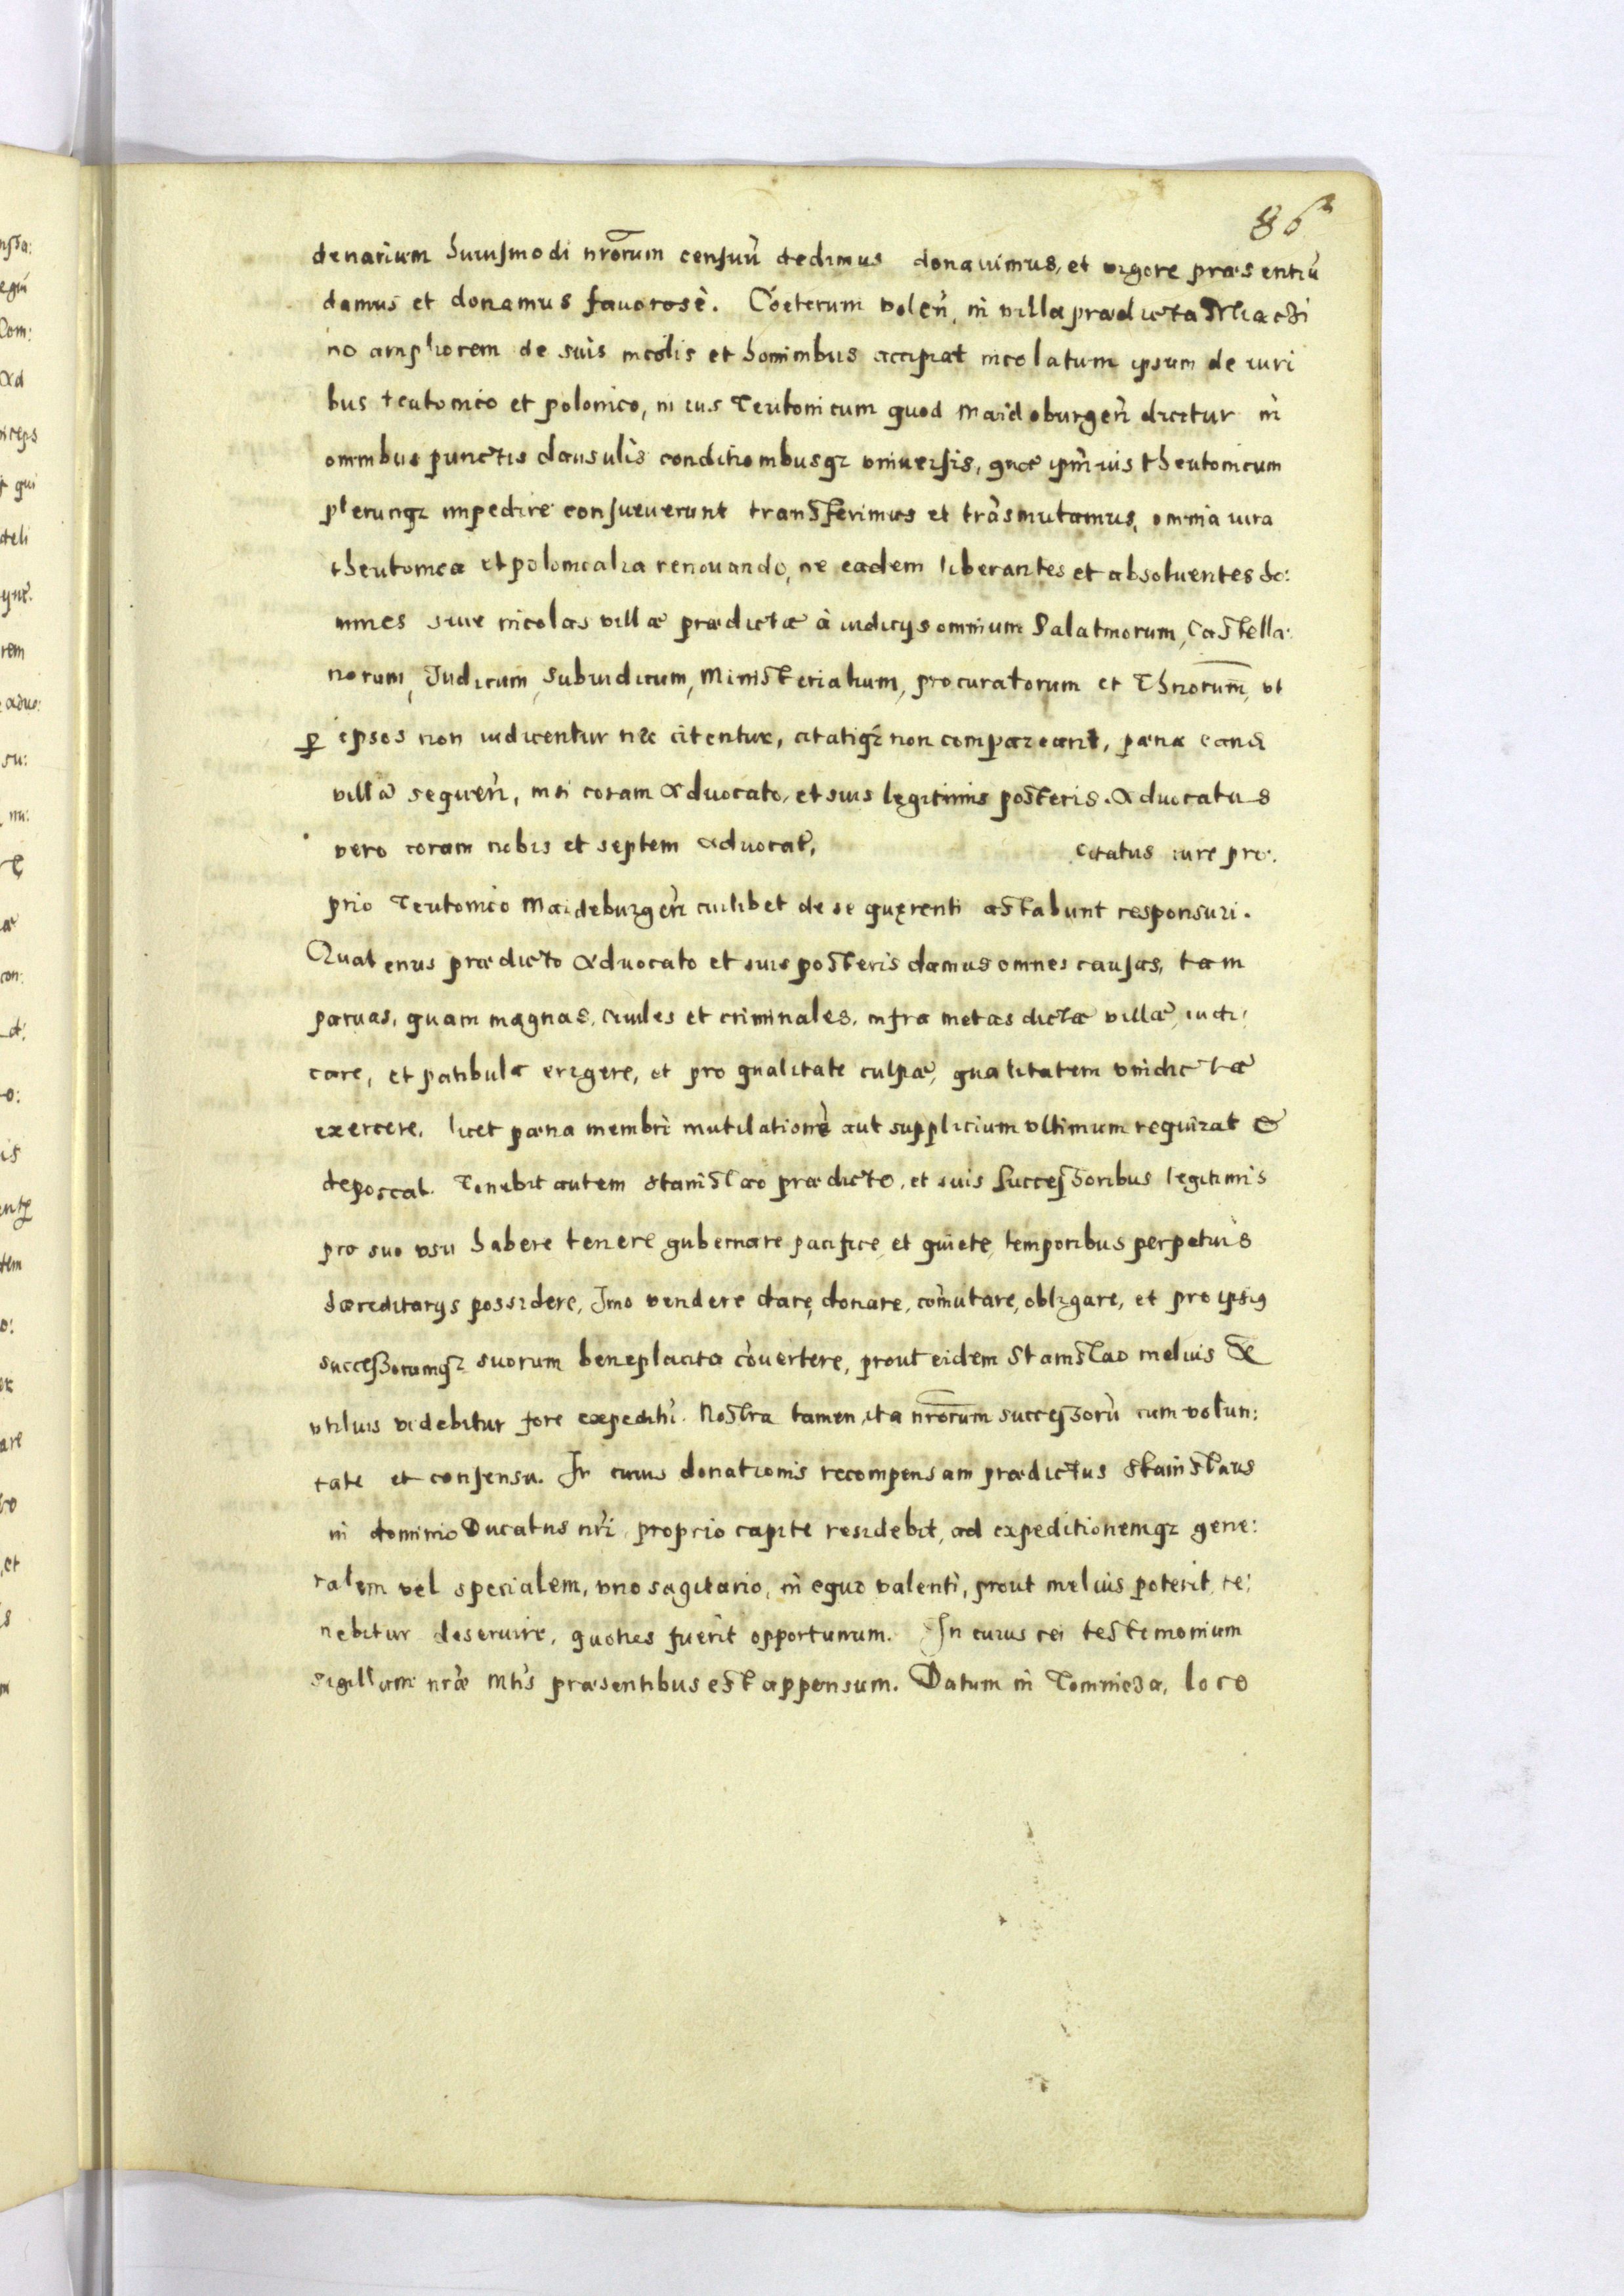 86
denarium huiusmodi nrõrum censuũ dedimus donauimus, et vigore præsentiũ
damus et donamus fauorosè. Cœterum volen̄, in villa prædicta Miachi
no ampliorem de suis incolis et hominibus accipiat incolatum ipsum de iuri
bus teutonico et polonico, in ius Teutonicum quod Maidoburgen̄ dicitur in
omnibus punctis clausulis conditionibusqꝫ vniuersis, quæ ipm̄ ius theutonicum
plerunqꝫ impedire consueuerunt transferimus et trãsmutamus, omnia iura
theutonica et polonicalia renouando, ne eadem liberantes et absoluentes ho:
mines siue incolas villæ prædictæ à iudicijs omnium Palatinorum, Castella:
norum, Iudicum, Subiudicum, Ministerialium, procuratorum et Thnorum̄, vt
ꝑ ipsos non iudicentur nec citentur, citatiqꝫ non compareant, pæna eand
villã sequen̄, nisi coram Aduocato, et suis legitimis posteris. Aduocatus
vero coram nobis et septem aduocat, citatus iure pro:
prio Teutonico Maideburgen̄ cuilibet de se quęrenti astabunt responsuri.
Quatenus prædicto Aduocato et suis posteris damus omnes causas, tam
paruas, quam magnas, ciuiles et criminales, infra metas dictæ villæ, iudi:
care, et patibula erigere, et pro qualitate culpæ, qualitatem vindictæ
exercere, licet pæna membri mutilationẽ aut supplicium vltimum requirat &
deposcat. Tenebit autem Stanislao prædicto, et suis successoribus legitimis
pro suo vsu habere tenere gubernare pacifice et quiete, temporibus perpetuis
hæreditarijs possidere, Imo vendere dare, donare, cõmutare, obligare, et pro ipsis
successorumqꝫ suorum beneplacita cõuertere, prout eidem Stanislao melius &
vtilius videbitur fore expediri. Nostra tamen, ita nrõrum successorũ cum volun:
tate et consensu. In cuius donationis recompensam prædictus Stanislaus
in dominio Ducatus nr̃i proprio capite residebit, ad expeditionemqꝫ gene:
ralem vel specialem, vno sagitario, in equo valenti, prout melius poterit, te:
nebitur deseruire, quoties fuerit opportunum. In cuius rei testimonium
sigillum nrãe Mtis præsentibus est appensum. Datum in Tomnicza, loco